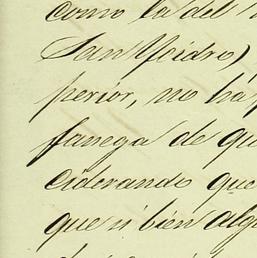 como la del
San Ysidro)
perior, no ha
fanega de qu
ciderando que
que si bien alg